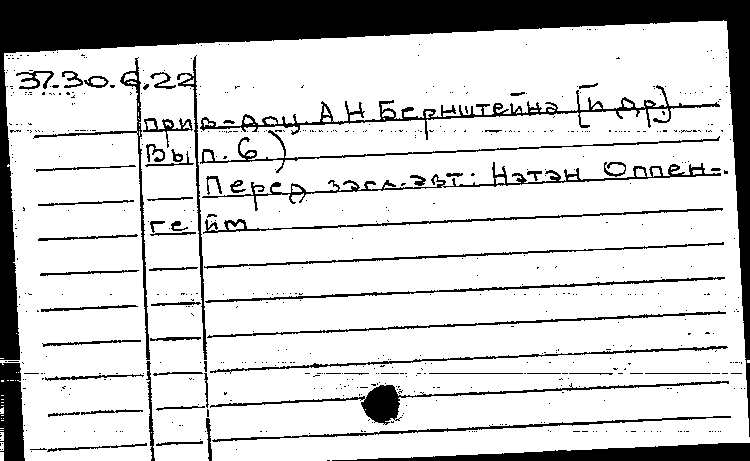 37.30.6.22
прив-доц А.Н Бернштейна [и др.]
Вып. 6.)
Перед загл. авт.: Натан Оппен-
гейм